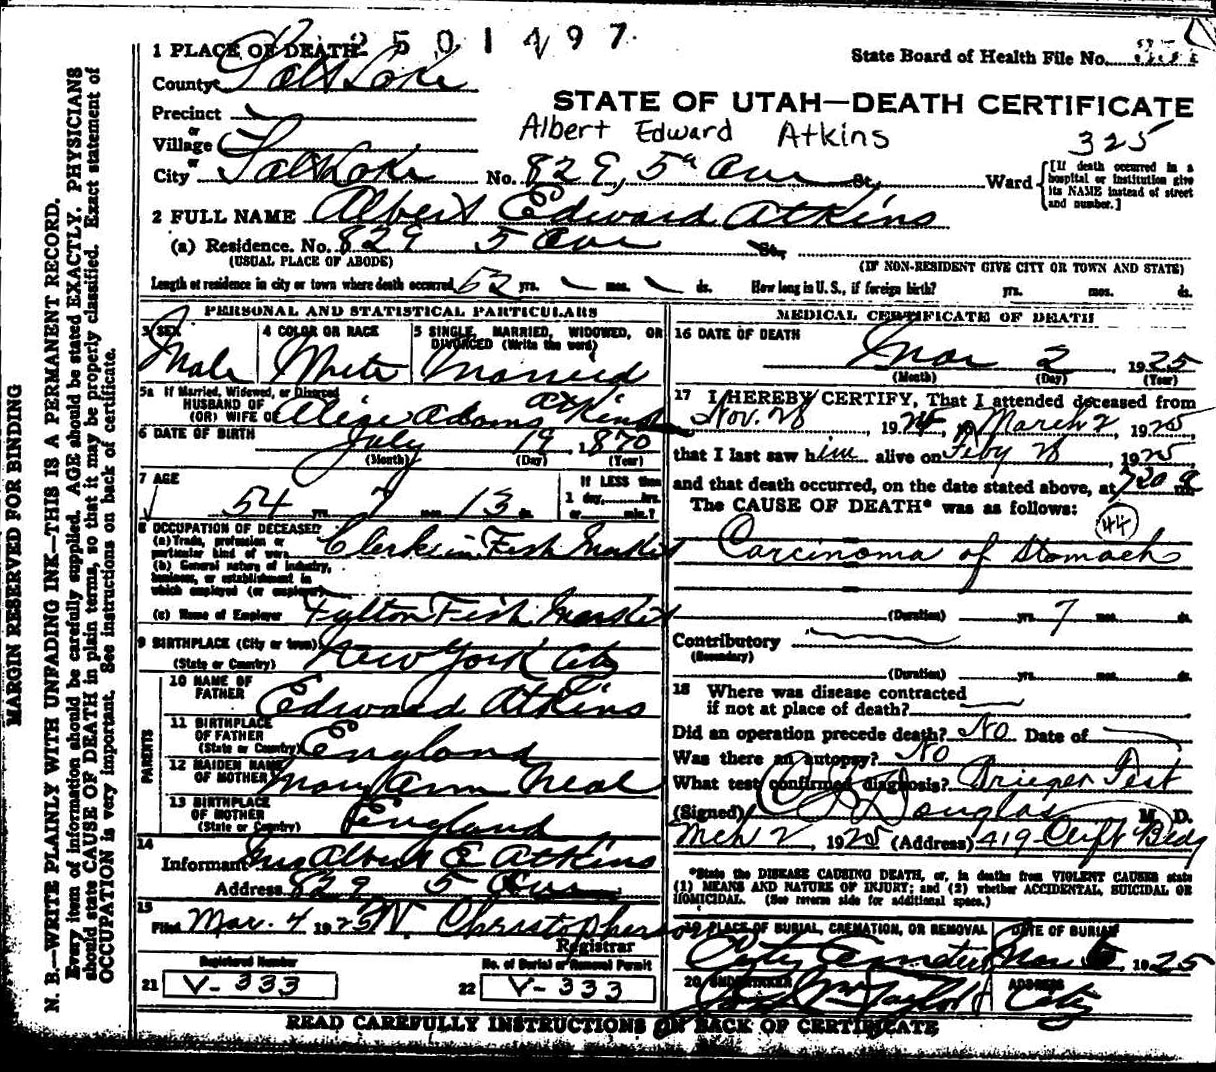 2501497
1 PLACE OF DEATH
State Board of Health File No.
County Salt Lake
STATE OF UTAH—DEATH CERTIFICATE
Precinct
Albert Edward Atkins
325
or
Village
or
City Salt Lake No. 829, 5th Ave St., Ward
[If death occurred in a hospital or institution give its NAME instead of street and number.]
2 FULL NAME Albert Edward Atkins
(a) Residence. No. 829 5 Ave St.,
(USUAL PLACE OF ABODE) (IF NON-RESIDENT GIVE CITY OR TOWN AND STATE)
Length of residence in city or town where death occurred 52 yrs. mos. ds. How long in U. S., if foreign birth? yrs. mos. ds.
PERSONAL AND STATISTICAL PARTICULARS
3 SEX
Male
4 COLOR OR RACE
White
5 SINGLE, MARRIED, WIDOWED, OR DIVORCED (Write the word)
Married
5a If Married, Widowed, or Divorced
HUSBAND OF
(OR) WIFE OF Alice Adams Atkins
6 DATE OF BIRTH July 19, 1870
(Month) (Day) (Year)
7 AGE
54 yrs. 7 mos. 13 ds.
If LESS than
1 day, hrs.
or min.?
8 OCCUPATION OF DECEASED
(a) Trade, profession or
particular kind of work Clerk in Fish Market
(b) General nature of industry,
business, or establishment in
which employed (or employer)
(c) Name of Employer Fulton Fish Market
9 BIRTHPLACE (City or town)
(State or Country) New York City
PARENTS
10 NAME OF
FATHER Edward Atkins
11 BIRTHPLACE
OF FATHER
(State or Country) England
12 MAIDEN NAME
OF MOTHER Mary Ann Neal
13 BIRTHPLACE
OF MOTHER
(State or Country) England
14
Informant Mrs Albert E Atkins
Address 829 5 Ave
15
Filed Mar. 4 1925 N. Christopherson
Registrar
Registered Number
21 V-333
No. of Burial or Removal Permit
22 V-333
MEDICAL CERTIFICATE OF DEATH
16 DATE OF DEATH
Mar 2 1925
(Month) (Day) (Year)
17 I HEREBY CERTIFY, That I attended deceased from
Nov. 28, 1924, to March 2, 1925,
that I last saw him alive on Feby 28, 1925
and that death occurred, on the date stated above, at 720 m.
The CAUSE OF DEATH* was as follows:
44
Carcinoma of Stomach
(Duration) yrs. 7 mos. ds.
Contributory
(Secondary)
(Duration) yrs. mos. ds.
18 Where was disease contracted
if not at place of death?
Did an operation precede death? No Date of
Was there an autopsy? No
What test confirmed diagnosis? Brieger Test
(Signed) Douglas M. D.
Mch 2, 1925 (Address) 419 Clift Bldg
*State the DISEASE CAUSING DEATH, or, in deaths from VIOLENT CAUSES state
(1) MEANS AND NATURE OF INJURY; and (2) whether ACCIDENTAL, SUICIDAL OR
HOMICIDAL. (See reverse side for additional space.)
19 PLACE OF BURIAL, CREMATION, OR REMOVAL
City Cemetery
DATE OF BURIAL
Mar 1925
20 UNDERTAKER
Taylor
ADDRESS
City
READ CAREFULLY INSTRUCTIONS ON BACK OF CERTIFICATE
MARGIN RESERVED FOR BINDING
N. B.—WRITE PLAINLY WITH UNFADING INK—THIS IS A PERMANENT RECORD.
Every item of information should be carefully supplied. AGE should be stated EXACTLY. PHYSICIANS
should state CAUSE OF DEATH in plain terms, so that it may be properly classified. Exact statement of
OCCUPATION is very important. See instructions on back of certificate.